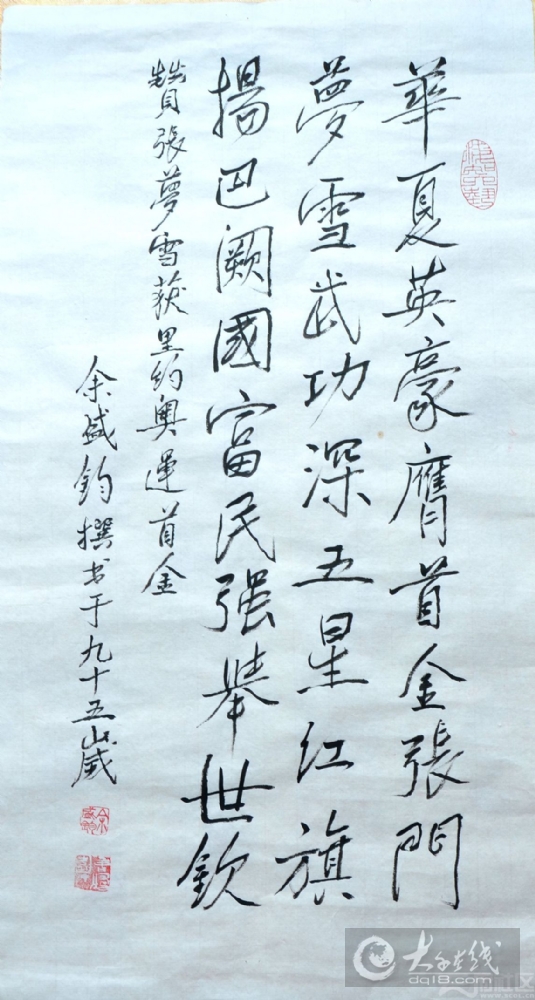 華夏英豪膺首金張門
夢雪武功深五星红旗
揚巴阙國富民强舉世欽
贊張夢雪获里约奥運首金
余盛钧撰书于九十五歲
大千在线
dq18.com